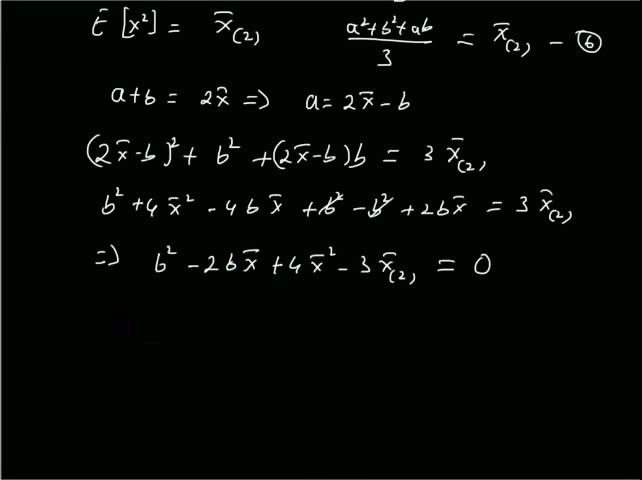 E [x²] = x̄₍₂₎   (a²+b²+ab)/3 = x̄₍₂₎ - ⑥
a+b = 2x̄ => a = 2x̄-b
(2x̄-b)² + b² + (2x̄-b)b = 3 x̄₍₂₎
b² + 4x̄² - 4bx̄ + b² - b² + 2bx̄ = 3 x̄₍₂₎
=> b² - 2bx̄ + 4x̄² - 3x̄₍₂₎ = 0